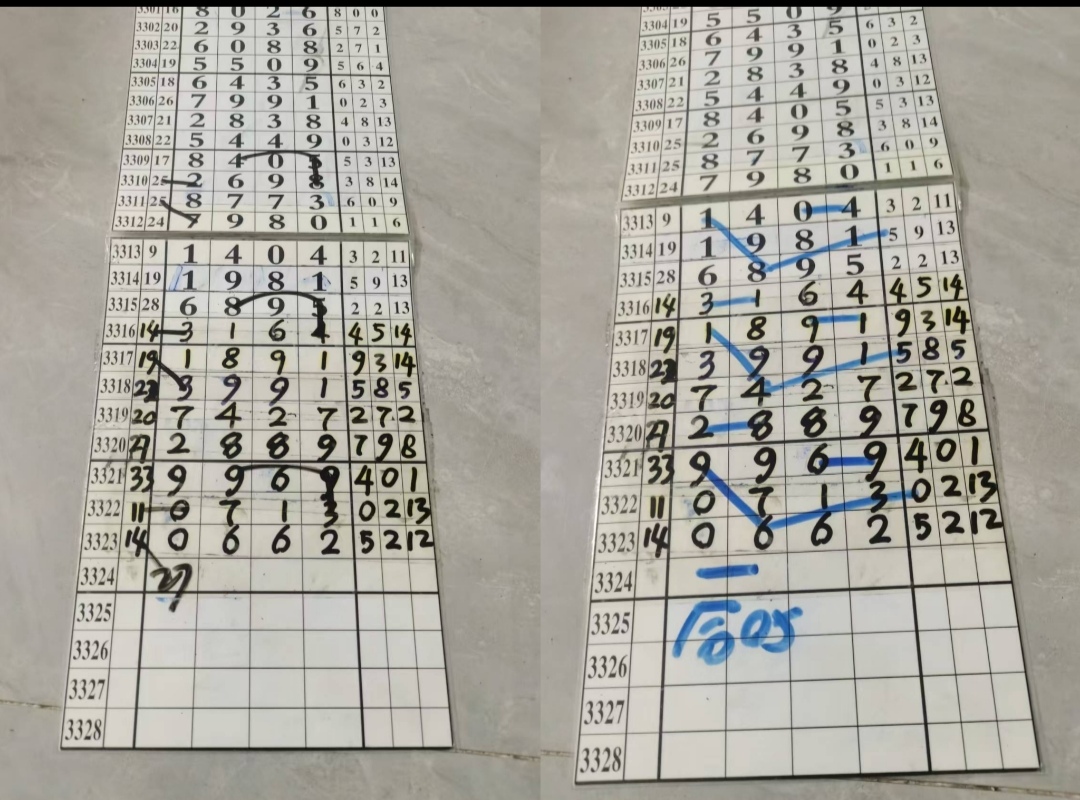 3301 16 8 0 2 6 8 0 0
3302 20 2 9 3 6 5 7 2
3303 22 6 0 8 8 2 7 1
3304 19 5 5 0 9 5 6 4
3305 18 6 4 3 5 6 3 2
3306 26 7 9 9 1 0 2 3
3307 21 2 8 3 8 4 8 13
3308 22 5 4 4 9 0 3 12
3309 17 8 4 0 5 5 3 13
3310 25 2 6 9 8 3 8 14
3311 25 8 7 7 3 6 0 9
3312 24 7 9 8 0 1 1 6
3313 9 1 4 0 4 3 2 11
3314 19 1 9 8 1 5 9 13
3315 28 6 8 9 5 2 2 13
3316 14 3 1 6 4 4 5 14
3317 19 1 8 9 1 9 3 14
3318 22 3 9 9 1 5 8 5
3319 20 7 4 2 7 2 7 2
3320 27 2 8 8 9 7 9 8
3321 33 9 9 6 9 4 0 1
3322 11 0 7 1 3 0 2 13
3323 14 0 6 6 2 5 2 12
3324
3325
3326
3327
3328
3304 19 5 5 0 9
3305 18 6 4 3 5 6 3 2
3306 26 7 9 9 1 0 2 3
3307 21 2 8 3 8 4 8 13
3308 22 5 4 4 9 0 3 12
3309 17 8 4 0 5 5 3 13
3310 25 2 6 9 8 3 8 14
3311 25 8 7 7 3 6 0 9
3312 24 7 9 8 0 1 1 6
3313 9 1 4 0 4 3 2 11
3314 19 1 9 8 1 5 9 13
3315 28 6 8 9 5 2 2 13
3316 14 3 1 6 4 4 5 14
3317 19 1 8 9 1 9 3 14
3318 22 3 9 9 1 5 8 5
3319 20 7 4 2 7 2 7 2
3320 27 2 8 8 9 7 9 8
3321 33 9 9 6 9 4 0 1
3322 11 0 7 1 3 0 2 13
3323 14 0 6 6 2 5 2 12
3324
3325 05
3326
3327
3328